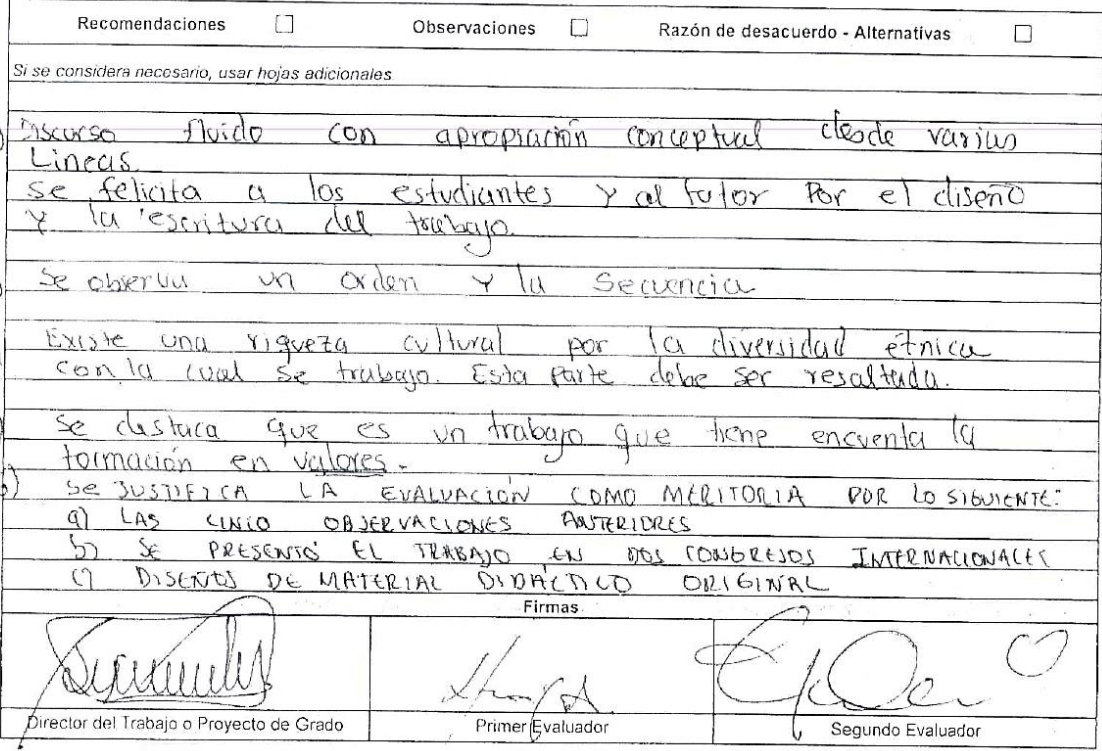 Recomendaciones ☐ Observaciones ☐ Razón de desacuerdo - Alternativas ☐
Si se considera necesario, usar hojas adicionales
Discurso fluido con apropiación conceptual desde varias
Lineas.
se felicita a los estudiantes y al tutor Por el diseño
y la escritura del trabajo.
Se observa un orden y la Secuencia
Existe una riqueza cultural por la diversidad étnica
con la cual se trabajo. Esta parte debe ser resaltada.
Se destaca que es un trabajo que tiene encuenta la
formación en valores.
) SE JUSTIFICA LA EVALUACIÓN COMO MERITORIA POR LO SIGUIENTE:
a) LAS CINCO OBSERVACIONES ANTERIORES
b) SE PRESENTÓ EL TRABAJO EN DOS CONGRESOS INTERNACIONALES
c) DISEÑOS DE MATERIAL DIDÁCTICO ORIGINAL
Firmas
Director del Trabajo o Proyecto de Grado Primer Evaluador Segundo Evaluador